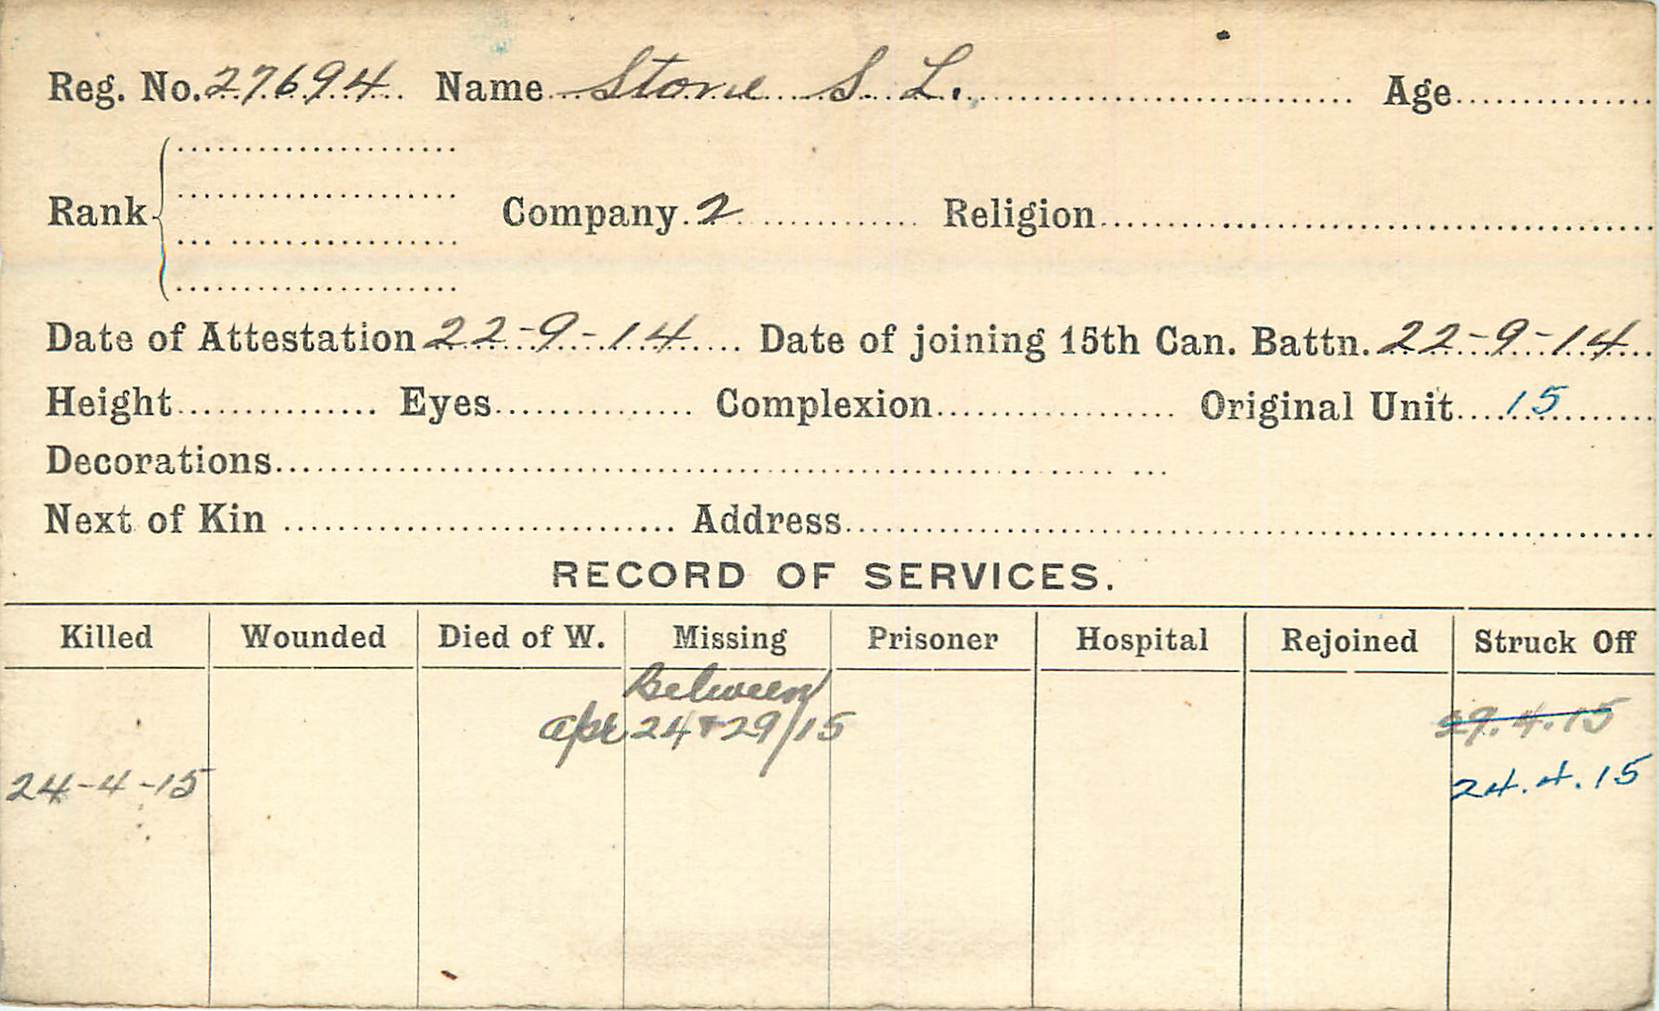 Reg. No. 27694 Name Stone S. L. Age
Rank Company 2 Religion
Date of Attestation 22-9-14 Date of joining 15th Can. Battn. 22-9-14
Height Eyes Complexion Original Unit 15
Decorations
Next of Kin Address
RECORD OF SERVICES.
Killed Wounded Died of W. Missing Prisoner Hospital Rejoined Struck Off
Between
apr 24 & 29/15 29.4.15
24-4-15 24.4.15